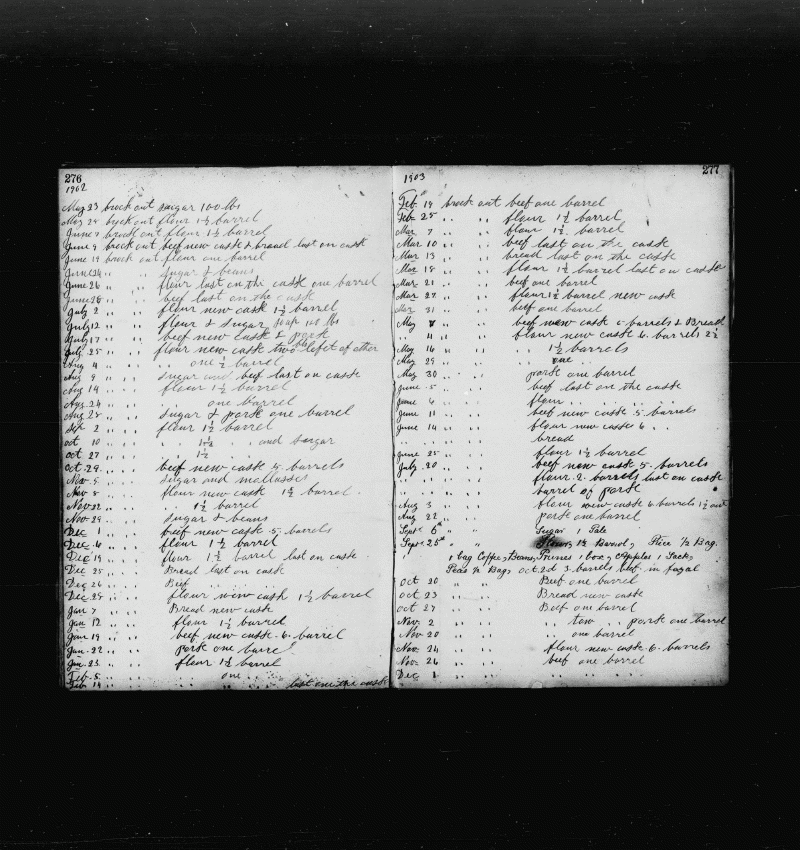 276
1902
May 23 brock out suigar 100 lbs
May 24 brock out flour 1½ barrel
June 7 brock out flour 1½ barrel
June 9 brock out beef new cask & bread last on cask
June 19 brock out flour one barrel
June 24 " " sugar & beans
June 26 " " flour last on the cask one barrel
June 28 " " beef last on the cask
July 2 " " flour new cask 1½ barrel
July 12 " " flour & sugar soap lbs
July 17 " " beef new cask & pork
July 25 " " flour new cask two left of other
Aug 4 " " " one ½ barrel
Aug 9 " " sugar and beef last on cask
Aug 14 " " flour 1½ barrel
Aug 24 " " " one barrel
Aug 28 " " sugar & pork one barrel
Sept 2 " " flour 1½ barrel
oct 10 " " " 1½ " and sugar
oct 27 " " " 1½ "
oct 29 " " beef new cask 5 barrels
Nov 5 " " sugar and mollasses
Nov 8 " " flour new cask 1½ barrel
Nov 22 " " " 1½ barrel
Nov 29 " " sugar & beans
Dec 1 " " beef new cask 5 barrels
Dec 6 " " flour 1½ barrel
Dec 19 " " flour 1½ barrel last on cask
Dec 25 " " Bread last on cask
Dec 26 " " Beef " " "
Dec 29 " " flour new cask 1½ barrel
Jan 7 " " Bread new cask
Jan 12 " " flour 1½ barrel
Jan 19 " " beef new cask 6 barrel
Jan 22 " " pork one barrel
Jan 23 " " flour 1½ barrel
Feb 5 " " " one "
Feb 14 " " " " last on the cask
277
1903
Feb 19 brock out beef one barrel
Feb 25 " " flour 1½ barrel
Mar 7 " " flour 1½ barrel
Mar 10 " " beef last on the cask
Mar 13 " " bread last on the cask
Mar 18 " " flour 1½ barrel last on cask
Mar 21 " " beef one barrel
Mar 27 " " flour 1½ barrel new cask
Mar 31 " " beef one barrel
May " " beef new cask barrels & Bread
" 11 " " flour new cask 6 barrels 2½
May 16 " " " 1½ barrels
May 29 " " " one "
May 30 " " pork one barrel
June 5 " " beef last on the cask
June 6 " " flour " " " "
June 11 " " beef new cask 5 barrels
June 14 " " flour new cask 6 "
" " " " bread
June 25 " " flour 1½ barrel
July 20 " " beef new cask 5 barrels
" " " flour 2 barrels last on cask
" " " barrel of pork
Aug 3 " " flour new cask 6 barrels 1½ out
Aug 22 " " pork one barrel
Sept 6th " " Sugar 1 Pale
Sept 25th " " Flour 1½ Barrel, Rice ½ Bag
1 bag Coffee, Beans, Prunes 1 box, Apples 1 Sack,
Peas ½ Bag, oct 2d 3 barrels beef in fayal
oct 20 " " Beef one barrel
oct 23 " " Bread new cask
oct 27 " " Beef one barrel
Nov 2 " " " tow " pork one barrel
Nov 20 " " " one barrel
Nov 24 " " flour new cask 6 barrels
Nov 26 " " beef one barrel
Dec 1 " " " " "